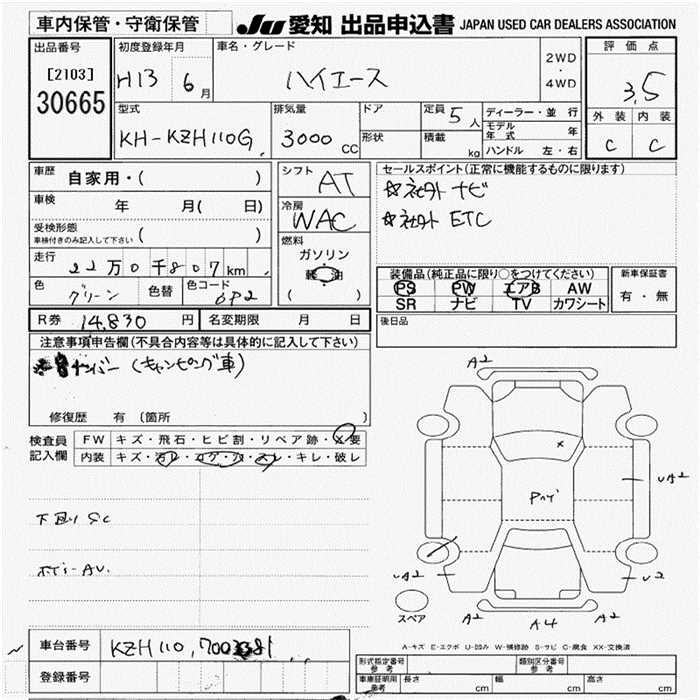 車内保管・守衛保管
JU 愛知 出品申込書 JAPAN USED CAR DEALERS ASSOCIATION
出品番号
[2103]
30665
初度登録年月
H13 6月
車名・グレード
ハイエース
2WD
・
4WD
評価点
3.5
外装 内装
C C
型式
KH-KZH110G
排気量
3000 CC
ドア
形状
定員 5人
積載 kg
ディーラー・並行
モデル年式 年
ハンドル 左・右
車歴 自家用・( )
車検 年 月( 日)
受検形態
車検付きのみ記入して下さい ( )
走行 22万0千807km
色 グリーン 色替 色コード 6P2
シフト AT
冷房 WAC
燃料
ガソリン
軽油
( )
セールスポイント(正常に機能するものに限ります)
☆社外 ナビ
☆社外 ETC
装備品(純正品に限り○をつけてください)
PS PW エアB AW
SR ナビ TV カワシート
新車保証書
有・無
R券 14,830 円 名変期限 月 日
後日品
注意事項申告欄(不具合内容等は具体的に記入して下さい)
ナンバー (キャンピング車)
修復歴 有 (箇所 )
検査員
記入欄
FW キズ・飛石・ヒビ割・リペア跡・X要
内装 キズ・汚レ・コゲ・穴・スレ・キレ・破レ
下廻り SC
A2
UA2
UA2
U2
A2
A4
A2
スペア
A-キズ E-エクボ U-凹み W-補修跡 S-サビ C-腐食 XX-交換済
車台番号 KZH110
登録番号
形式指定番号
参考
類別区分番号
参考
車庫証明用
参考
長さ cm 幅 cm 高さ cm